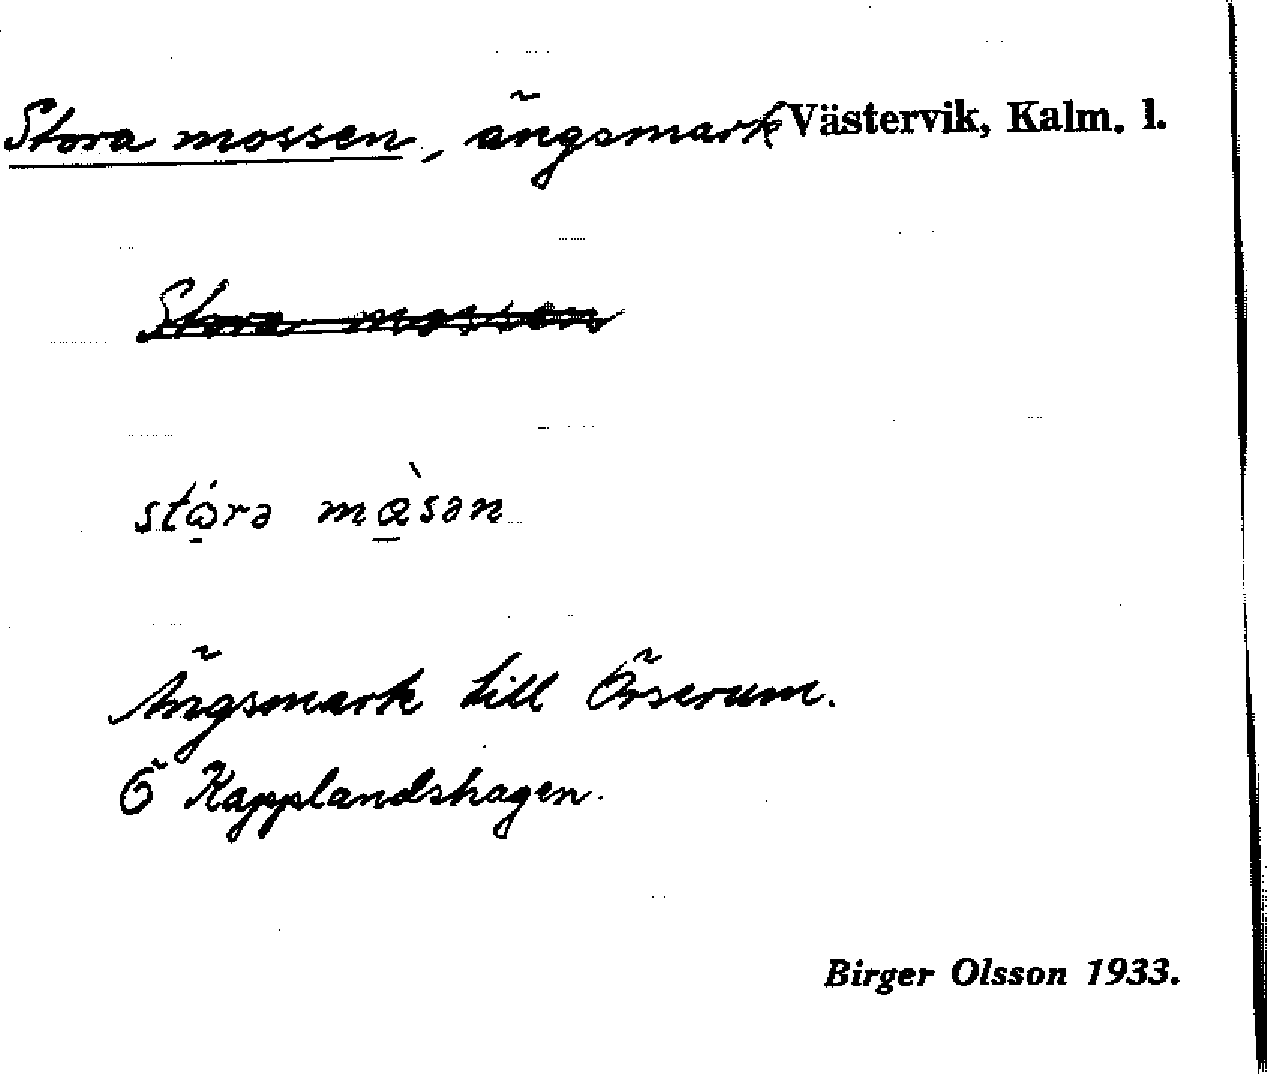 Stora mossen, ängsmark Västervik, Kalm. l.
Stora mossen
stórə màsən
Ängsmark till Örserum.
Ö Kapplandshagen.
Birger Olsson 1933.